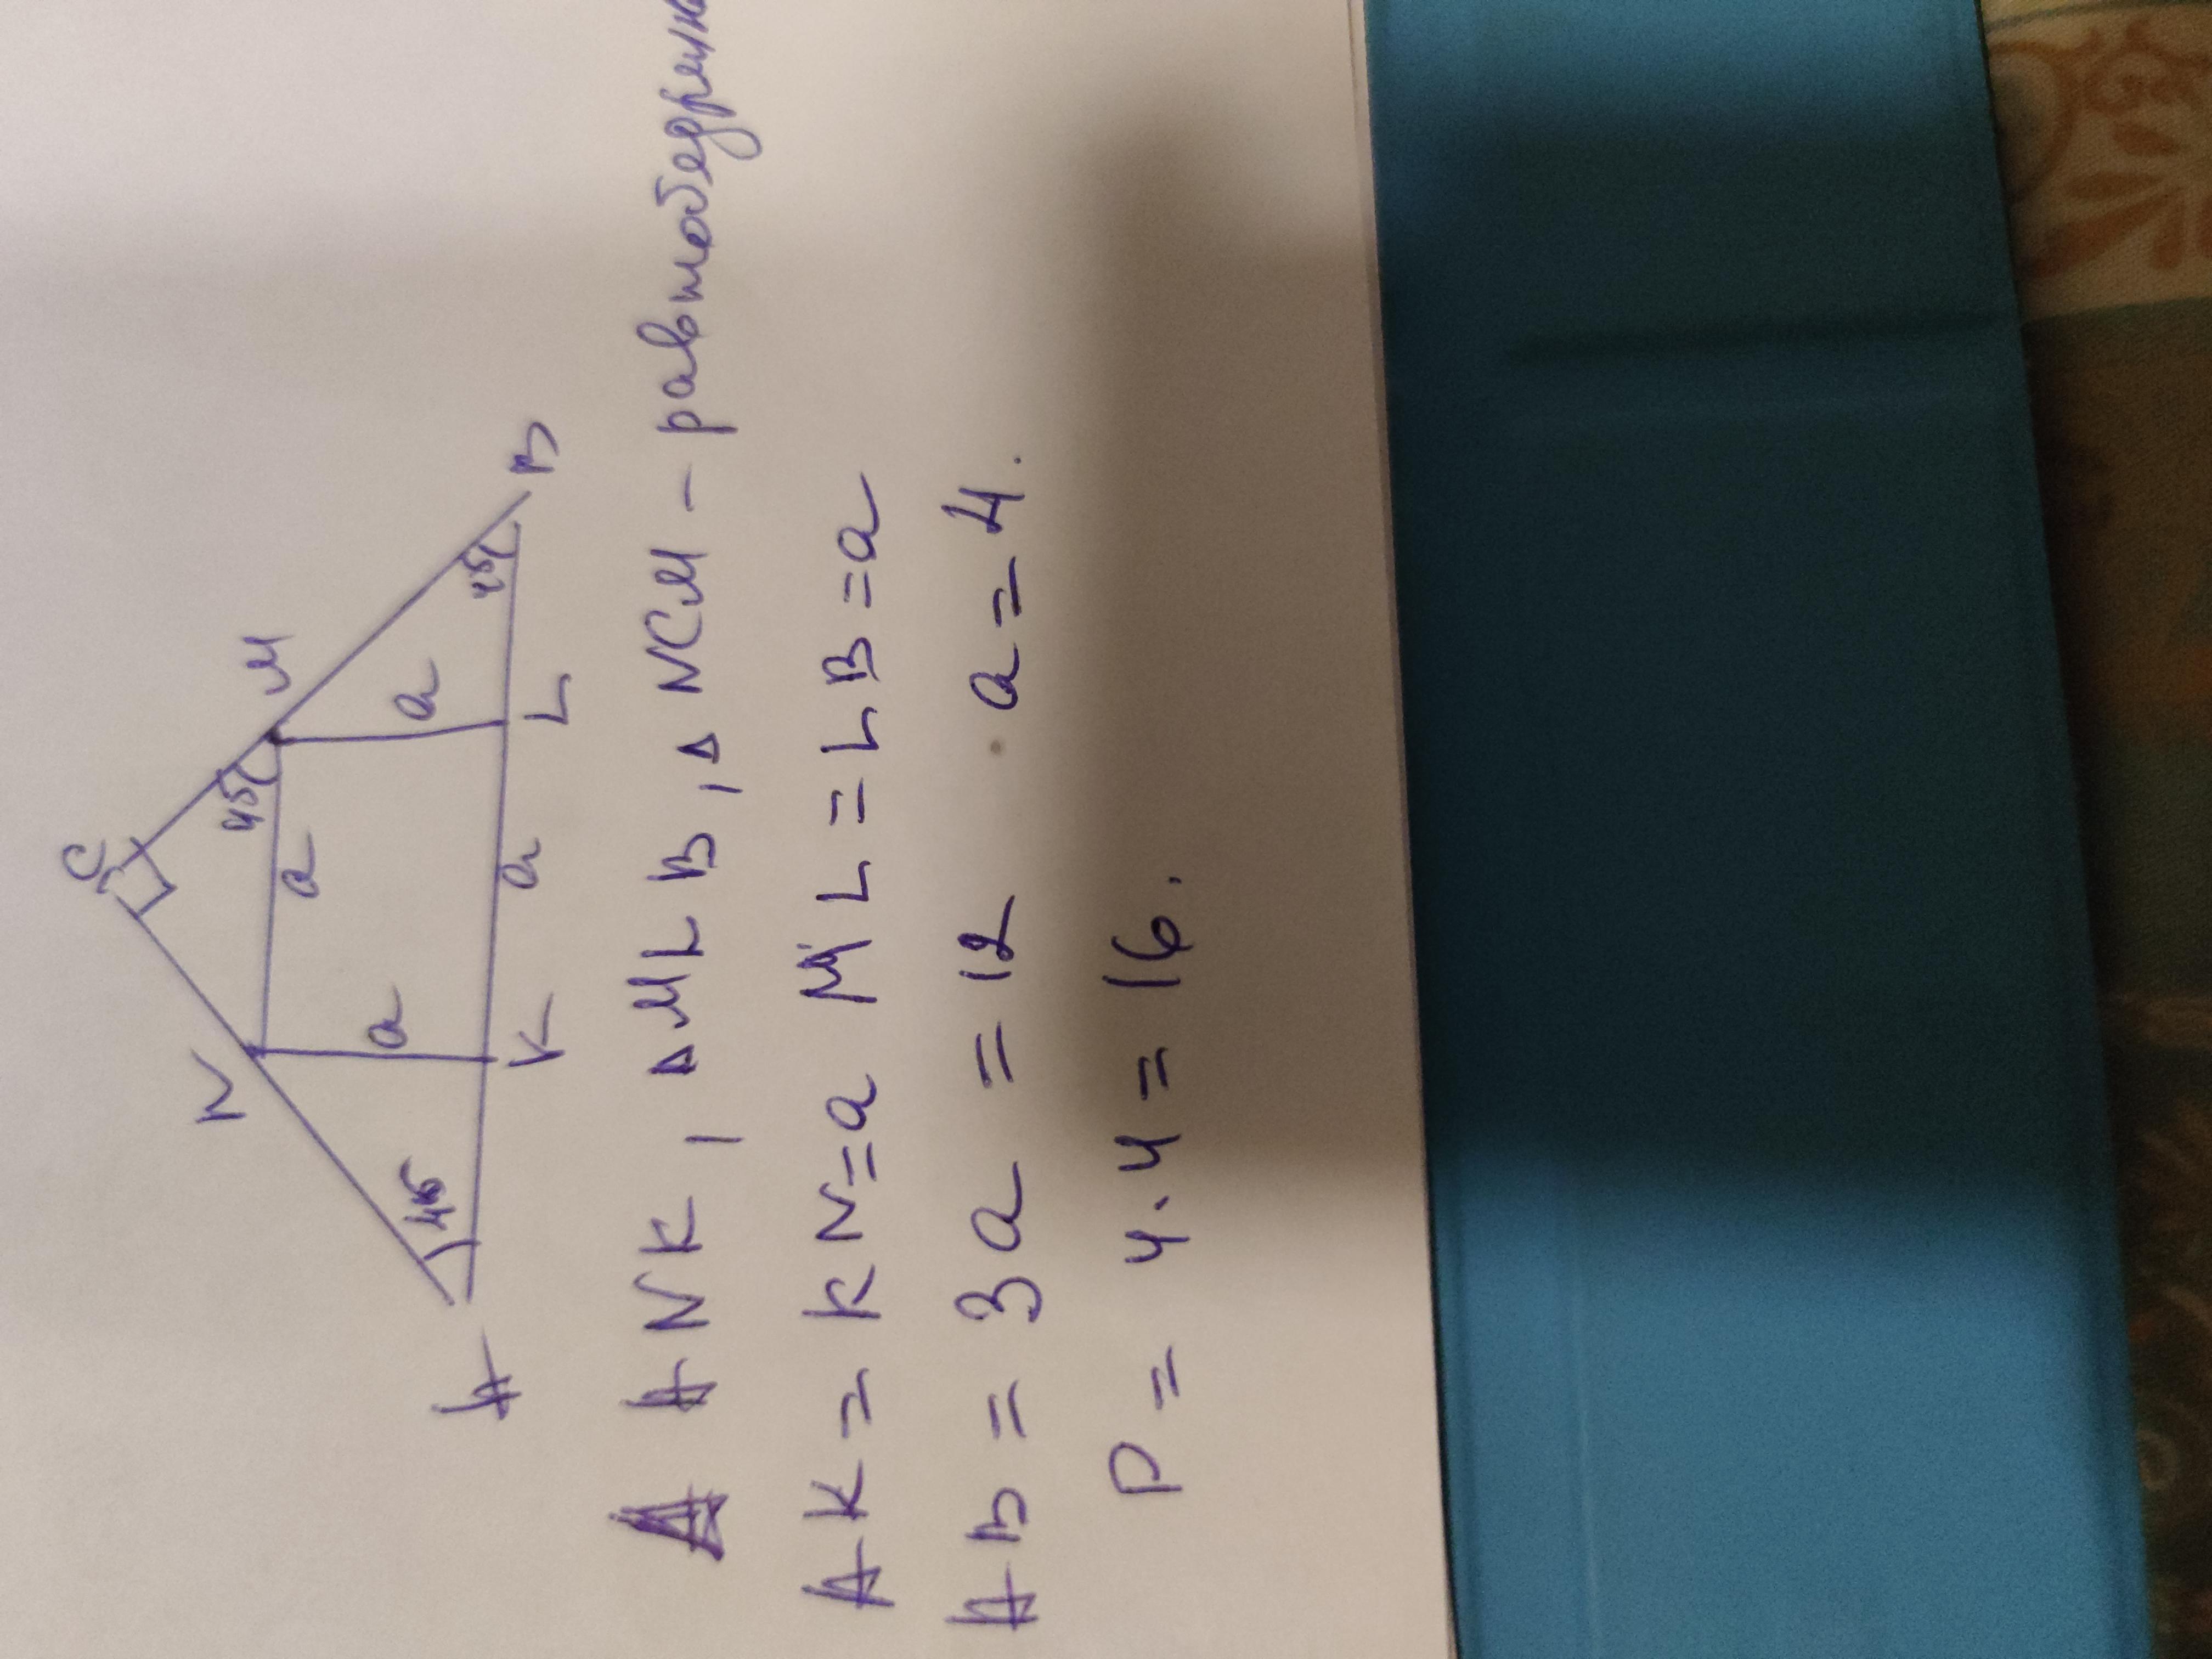 C
N
M
45
a
a
a
45
45
A
K
a
L
B
Δ ANK, Δ MLB, Δ NCM - равнобедренн
AK = KN = a ML = LB = a
AB = 3a = 12 a = 4.
P = 4·4 = 16.